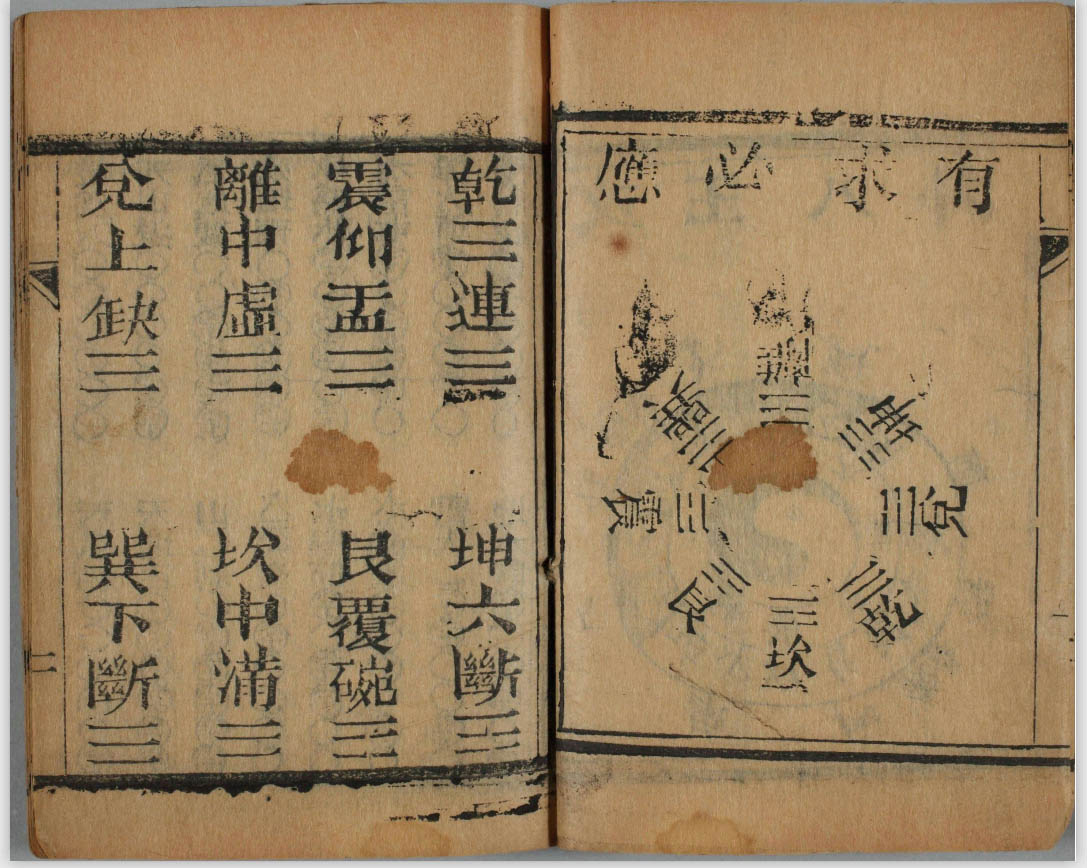 有求必應
離☲
坤☷
兌☱
乾☰
坎☵
艮☶
震☳
巽☴
乾三連☰
坤六斷☷
震仰盂☳
艮覆碗☶
離中虛☲
坎中滿☵
兌上缺☱
巽下斷☴
二